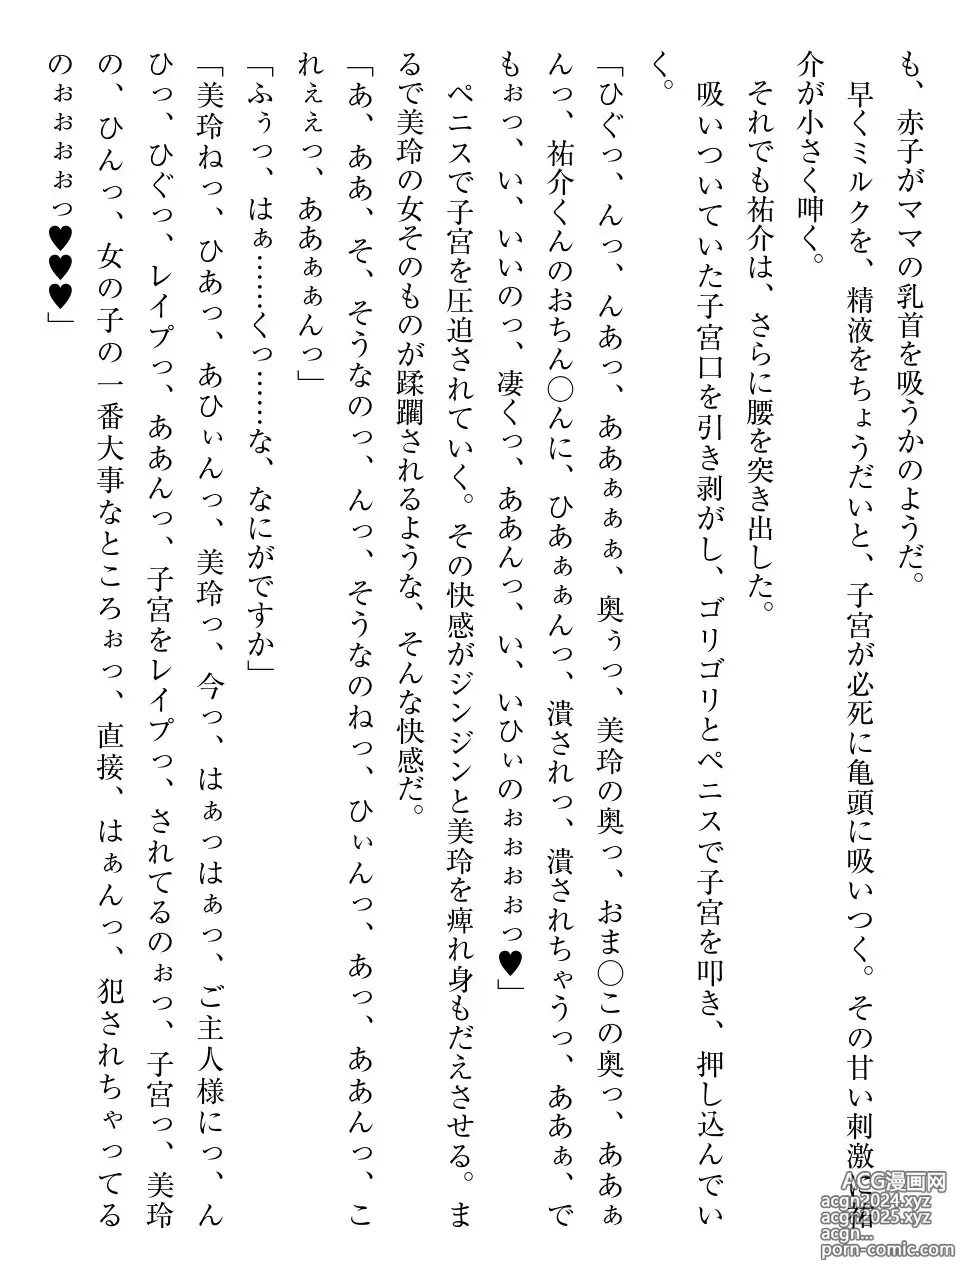 も、赤子がママの乳首を吸うかのようだ。
早くミルクを、精液をちょうだいと、子宮が必死に亀頭に吸いつく。その甘い刺激に祐
介が小さく呻く。
それでも祐介は、さらに腰を突き出した。
吸いついていた子宮口を引き剥がし、ゴリゴリとペニスで子宮を叩き、押し込んでい
く。
「ひぐっ、んっ、んあっ、ああぁぁぁ、奥ぅっ、美玲の奥っ、おま〇この奥っ、ああぁ
んっ、祐介くんのおちん〇んに、ひあぁぁんっ、潰されっ、潰されちゃうっ、ああぁ、で
もぉっ、い、いいのっ、凄くっ、ああんっ、い、いひぃのぉぉぉぉっ♥」
ペニスで子宮を圧迫されていく。その快感がジンジンと美玲を痺れ身もだえさせる。ま
るで美玲の女そのものが蹂躙されるような、そんな快感だ。
「あ、ああ、そ、そうなのっ、んっ、そうなのねっ、ひぃんっ、あっ、ああんっ、こ
れぇぇっ、ああぁぁんっ」
「ふぅっ、はぁ……くっ……な、なにがですか」
「美玲ねっ、ひあっ、あひぃんっ、美玲っ、今っ、はぁっはぁっ、ご主人様にっ、ん
ひっ、ひぐっ、レイプっ、ああんっ、子宮をレイプっ、されてるのぉっ、子宮っ、美玲
の、ひんっ、女の子の一番大事なところぉっ、直接、はぁんっ、犯されちゃってる
のぉぉぉぉっ♥♥♥」
ACG漫画网
acgn2024.xyz
acgn2025.xyz
acgn...
porn-comic.com